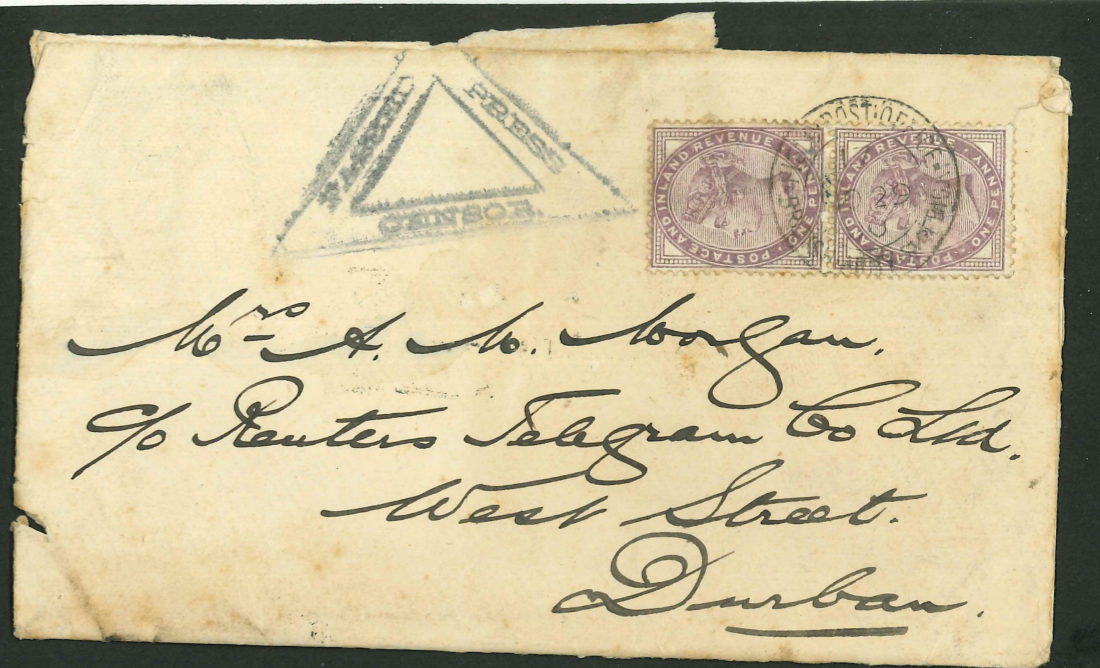 PASSED PRESS CENSOR.
POSTAGE AND INLAND REVENUE ONE PENNY
POSTAGE AND INLAND REVENUE ONE PENNY
Mrs A. M. Morgan.
c/o Reuters Telegram Co Ltd.
West Street.
Durban.